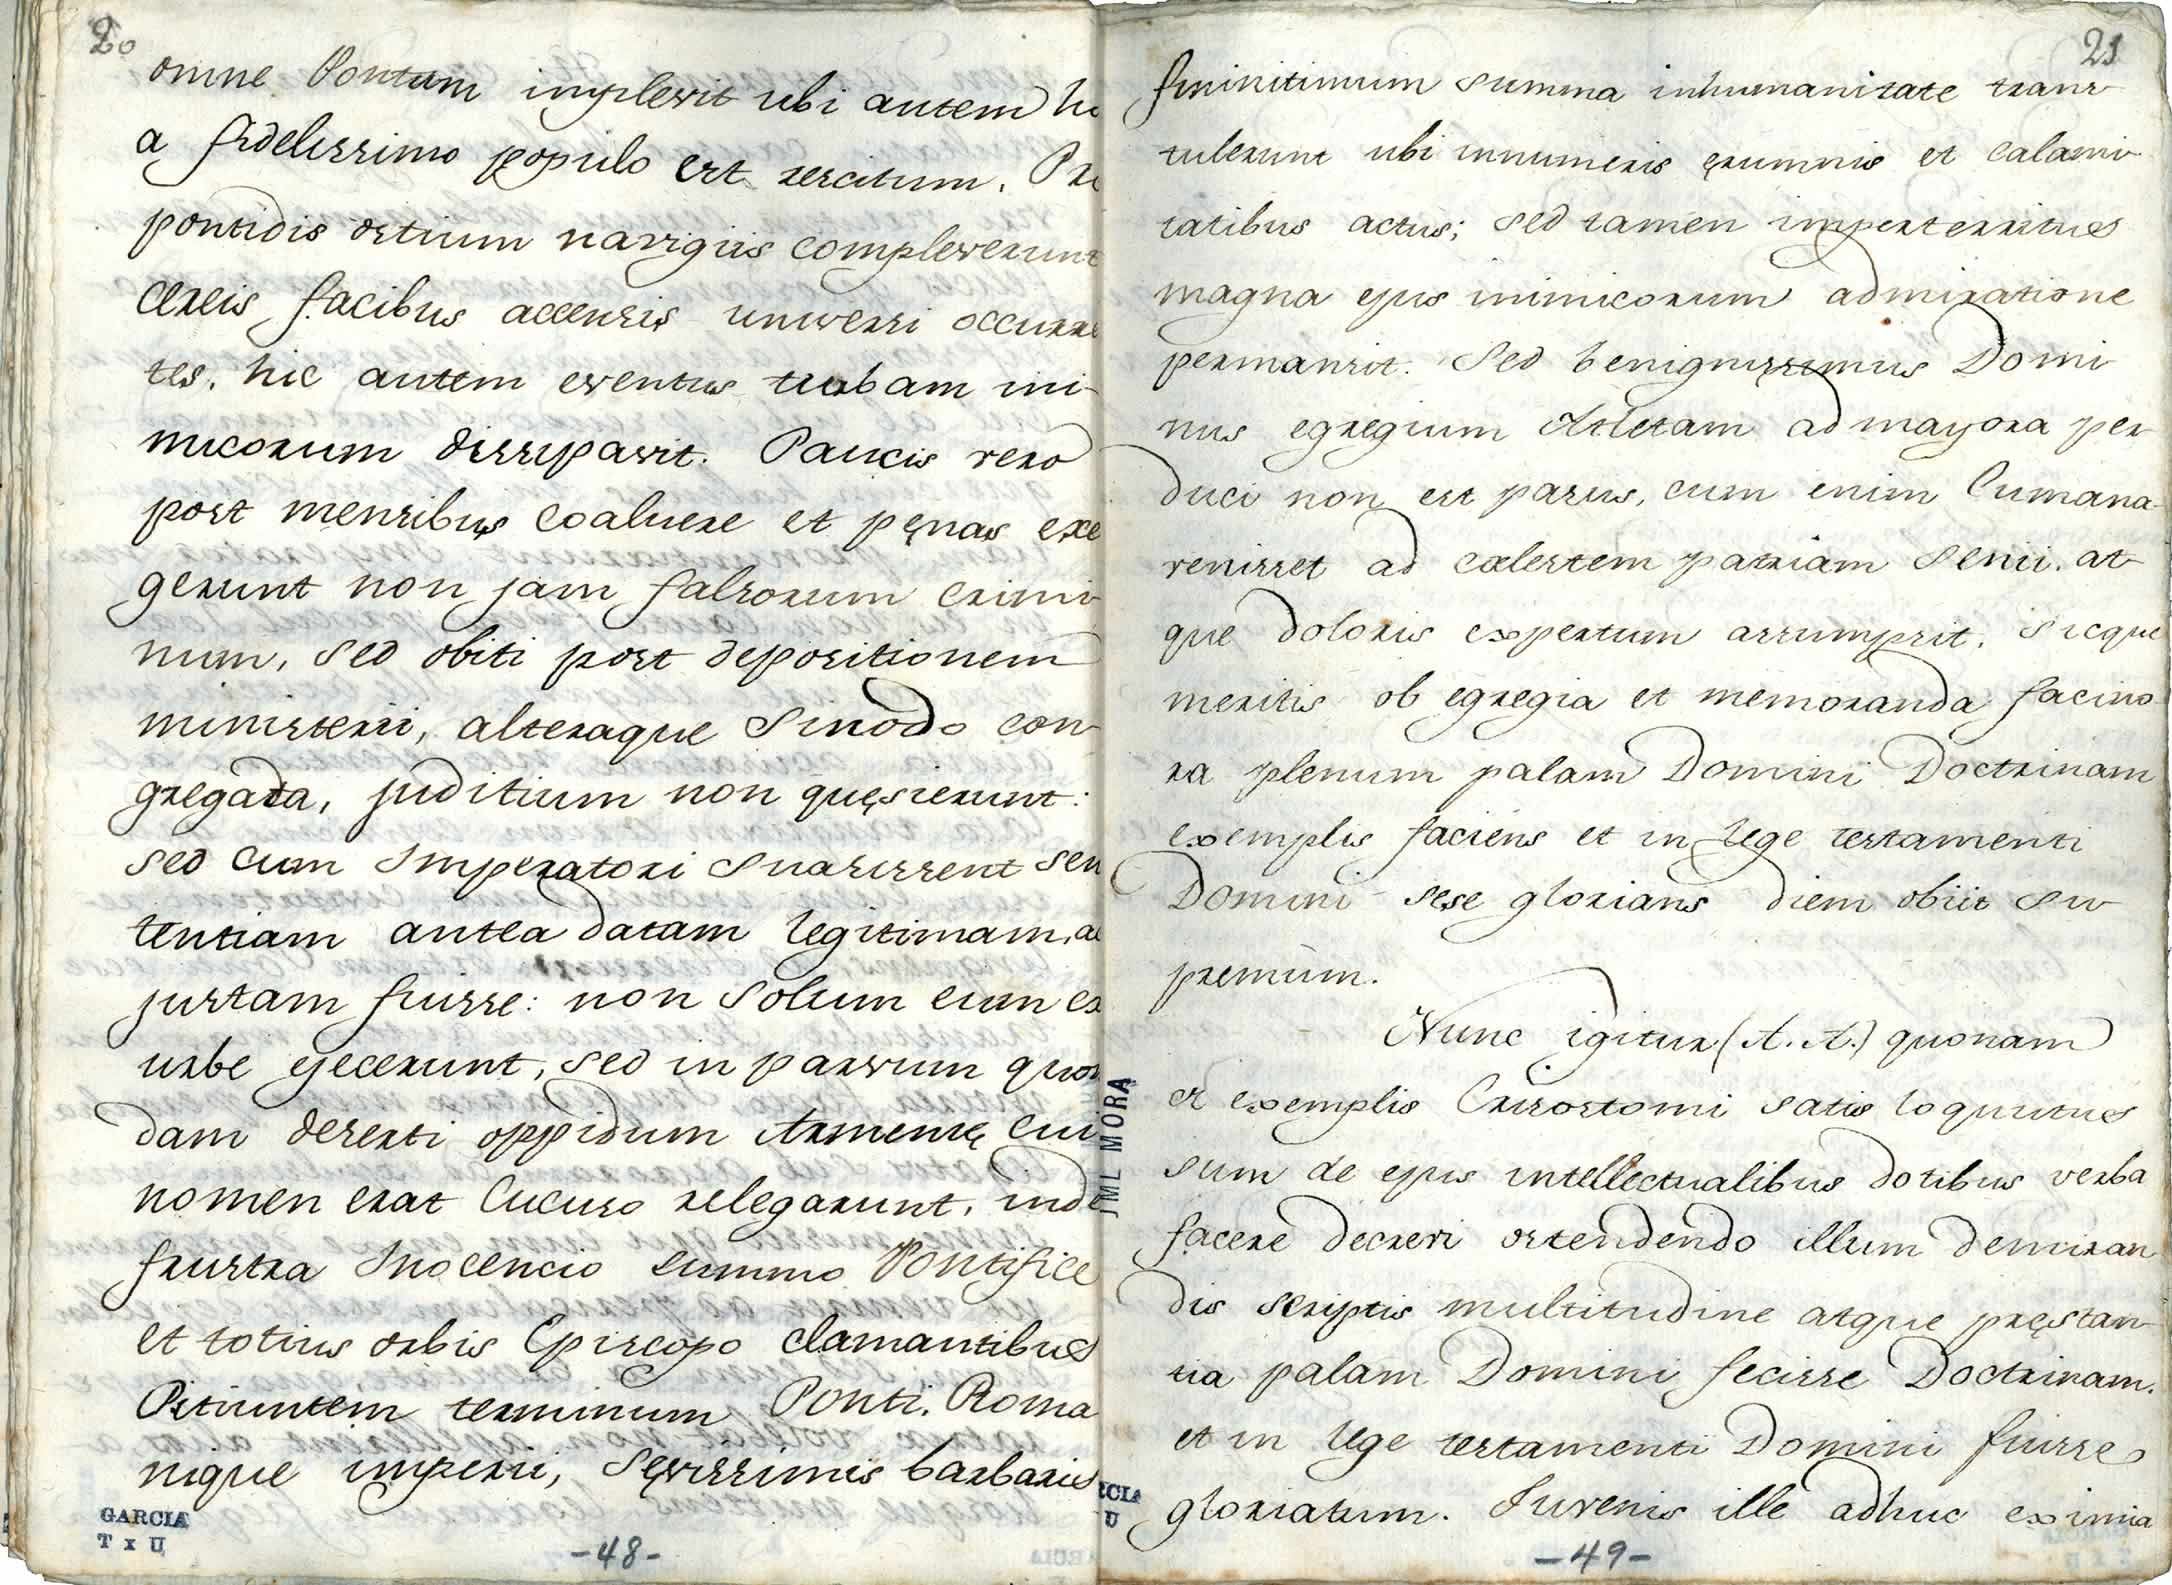 20
omne Pontum implevit ubi autem h
a fidelissimo populo est rescitum. Pr
pontidis ostium navigiis compleverunt
cereis facibus accensis universi occurre
tes. hic autem eventus turbam ini
micorum dissipavit. Paucis vero
post mensibus coaluere et pęnas exe
gerunt non jam falsorum crimi
num, sed obiti post depositionem
ministerii, alteraque Sinodo con
gregada, juditium non quęsierunt:
sed cum Imperatori suasissent sen
tentiam antea datam legitimam, a
justam fuisse: non solum eum ex
urbe ejecerunt, sed in parvum quon
dam deserti oppidum Armenię cui
nomen erat Cucuso relegarunt, inde
frustra Inocencio summo Pontifice
et totius orbis Episcopo clamantibus
Pitiuntem terminum Ponti. Roma
nique imperii, sęvissimis barbaris
GARCIA
T x U
-48-
21
fininitimum summa inhumanitate trans
tulerunt ubi innumeris ęrumnis et calami
tatibus actus; sed tamen imperterritus
magna ejus inimicorum admiratione
permansit. Sed benignissimus Domi
nus egregium Atletam ad mayora per
duci non est pasus, cum enim Cumana
venisset ad cælestem patriam senii. at
que doloris expertum assumpsit. Sicque
meritis ob egregia et memoranda facino
ra plenum palam Domini Doctrinam
exemplis faciens et in lege testamenti
Domini sese glorians diem obiit su
premum.
Nunc igitur (A. A.) quonam
ex exemplis Crisostomi satis loquutus
sum de ejus intellectualibus dotibus verba
facere decrevi ostendendo illum demiran
dis scriptis multitudine atque pręstan
tia palam Domini fecisse Doctrinam.
et in lege testamenti Domini fuisse
gloriatum. Juvenis ille adhuc eximia
JML MORA
RCIA
U
-49-